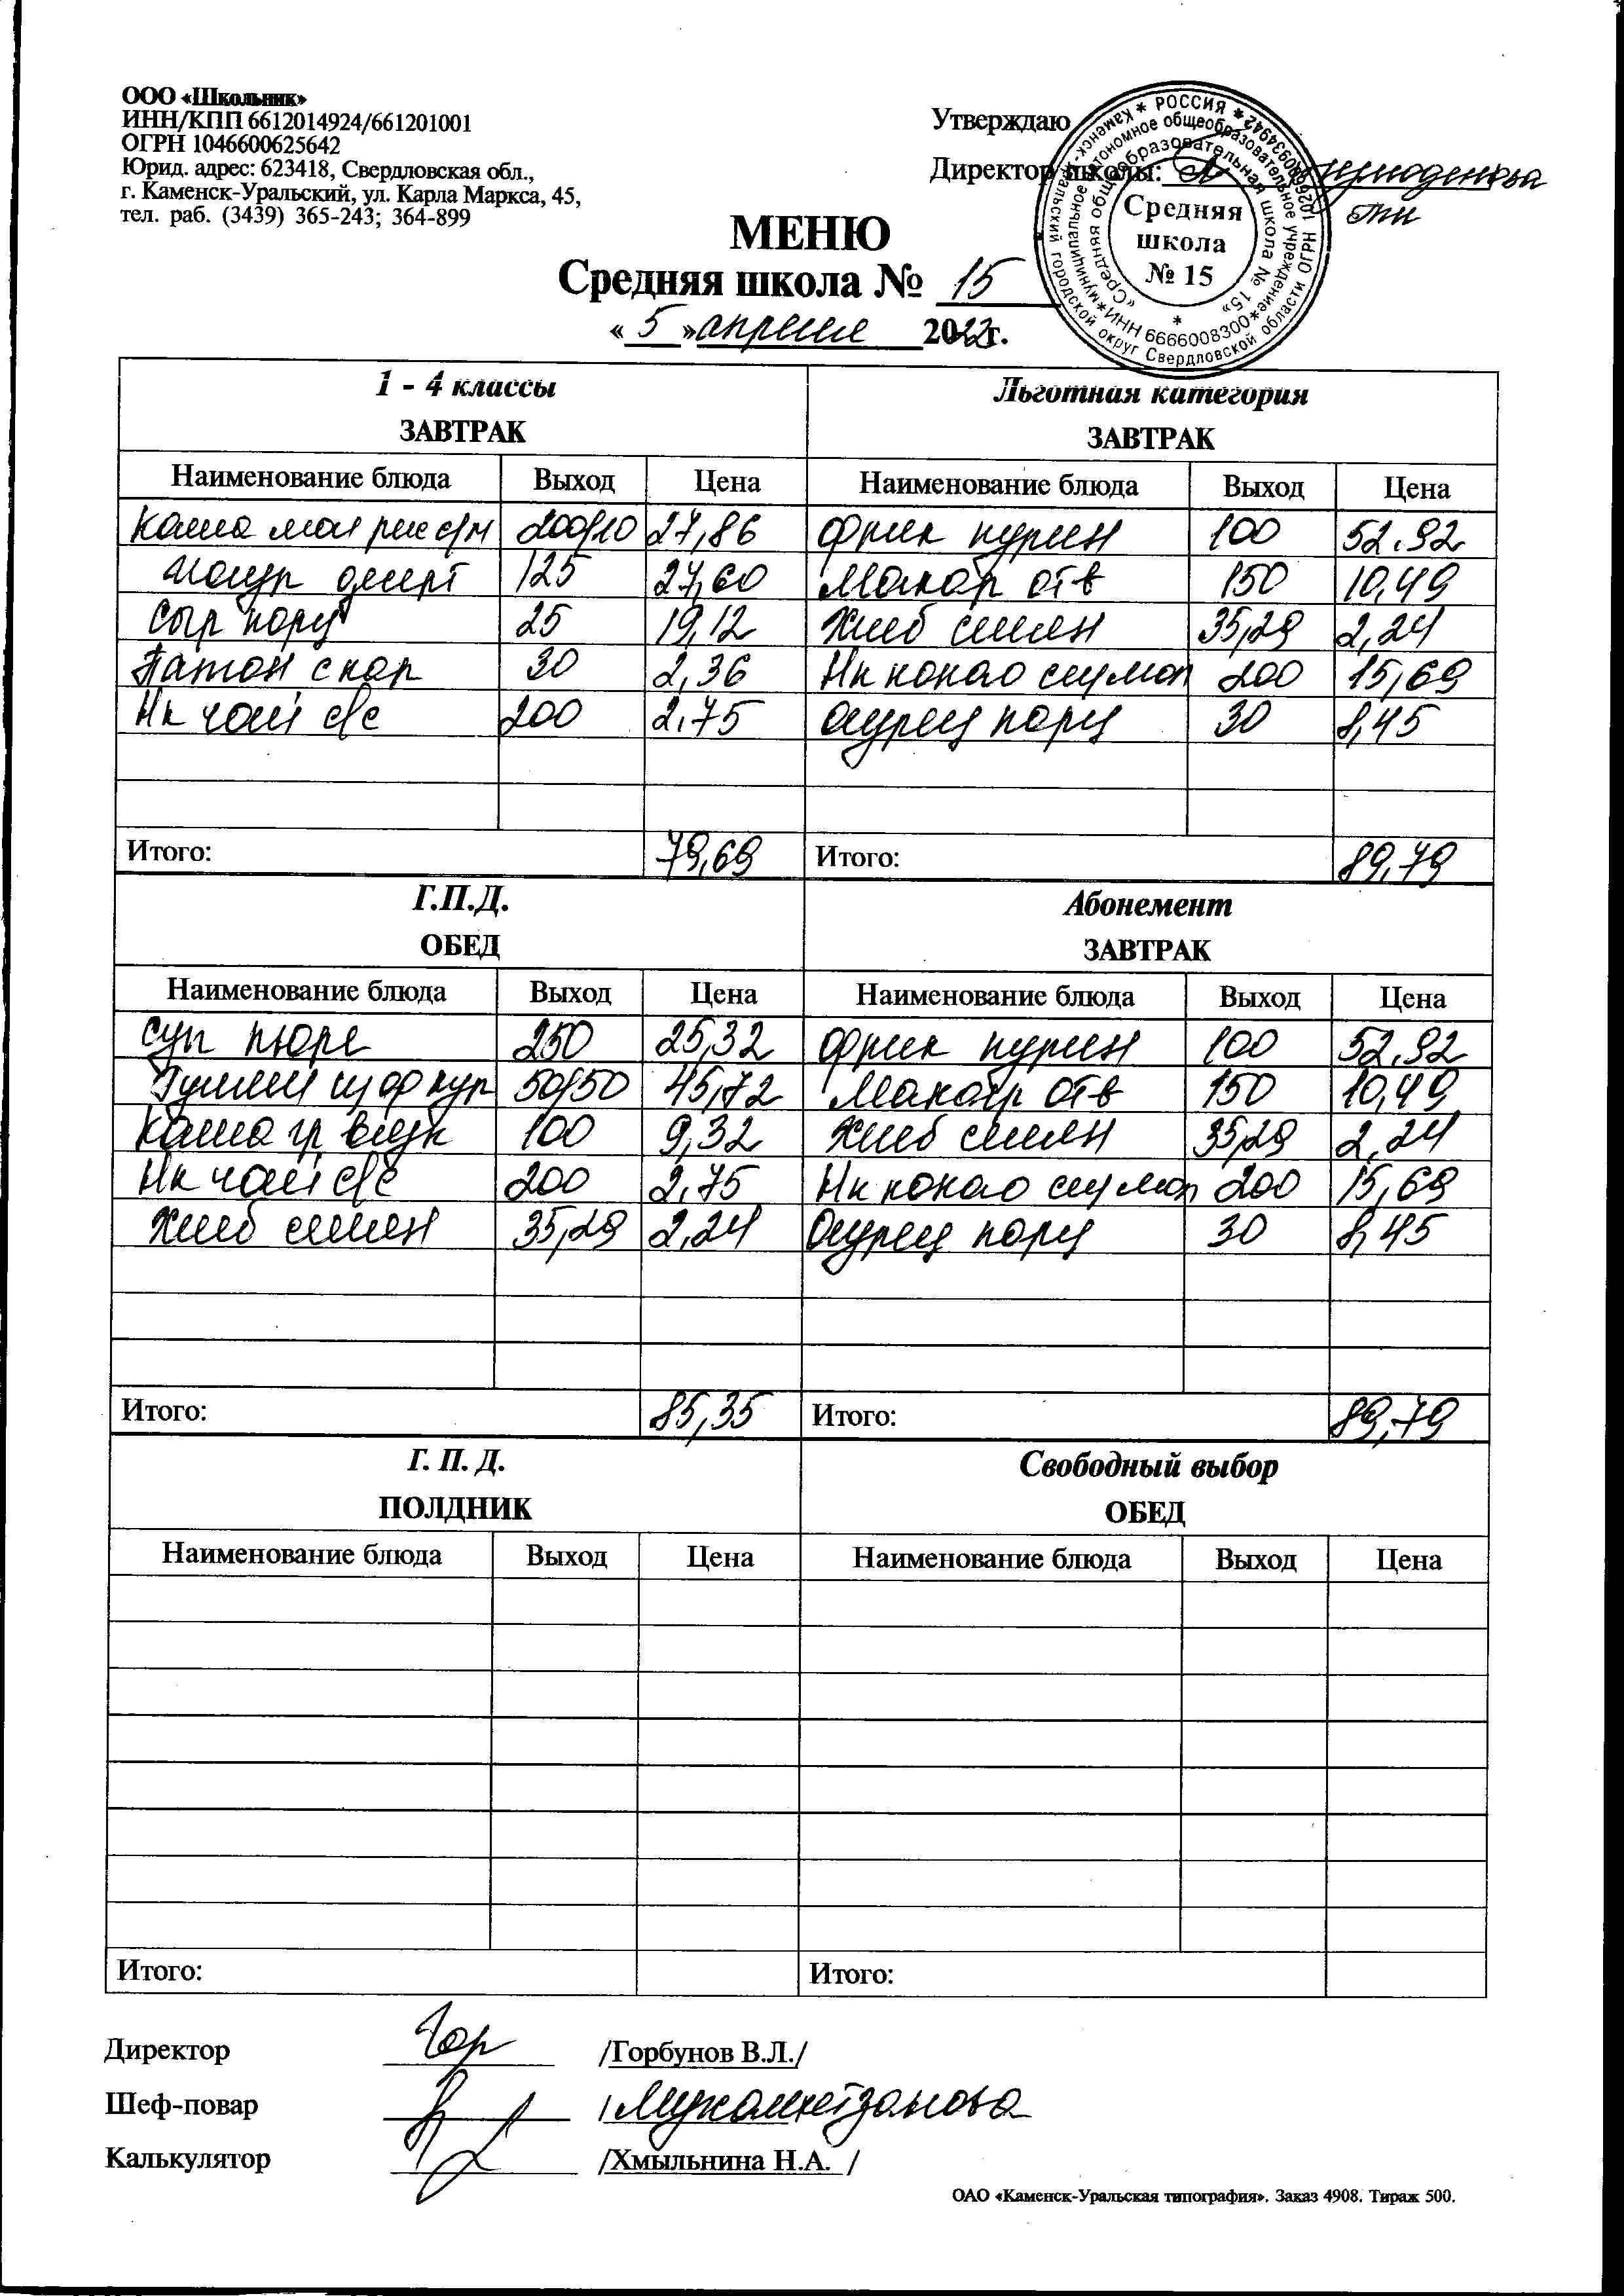 ООО «Школьник»
ИНН/КПП 6612014924/661201001
ОГРН 1046600625642
Юрид. адрес: 623418, Свердловская обл.,
г. Каменск-Уральский, ул. Карла Маркса, 45,
тел. раб. (3439) 365-243; 364-899
Утверждаю
Директор школы:
Средняя
школа
№ 15
МЕНЮ
Средняя школа № 15
« 5 » апреля 2022г.
1 - 4 классы
ЗАВТРАК
Наименование блюда Выход Цена
Каша мол рис с/м 200/10 27,86
Йогур десерт 125 27,60
Сыр порц 25 19,12
Батон с нар 30 2,36
Нк чай с/с 200 2,75
Итого: 79,69
Льготная категория
ЗАВТРАК
Наименование блюда Выход Цена
Фрик курин 100 52.92
Макар отв 150 10,49
Хлеб смен 35,29 2,24
Нк какао сгумол 200 15,69
Огурец порц 30 8,45
Итого: 89,79
Г.П.Д.
ОБЕД
Наименование блюда Выход Цена
Суп пюре 250 25,32
Гуляш из ф кур 50/50 45,72
Каша гр вязк 100 9,32
Нк чай с/с 200 2,75
Хлеб смен 35,29 2,24
Итого: 85,35
Абонемент
ЗАВТРАК
Наименование блюда Выход Цена
Фрик курин 100 52.92
Макар отв 150 10,49
Хлеб смен 35,29 2,24
Нк какао сгумол 200 15,69
Огурец порц 30 8,45
Итого: 89,79
Г. П. Д.
ПОЛДНИК
Наименование блюда Выход Цена
Итого:
Свободный выбор
ОБЕД
Наименование блюда Выход Цена
Итого:
Директор /Горбунов В.Л./
Шеф-повар /Мухаметзанова
Калькулятор /Хмыльнина Н.А. /
ОАО «Каменск-Уральская типография». Заказ 4908. Тираж 500.